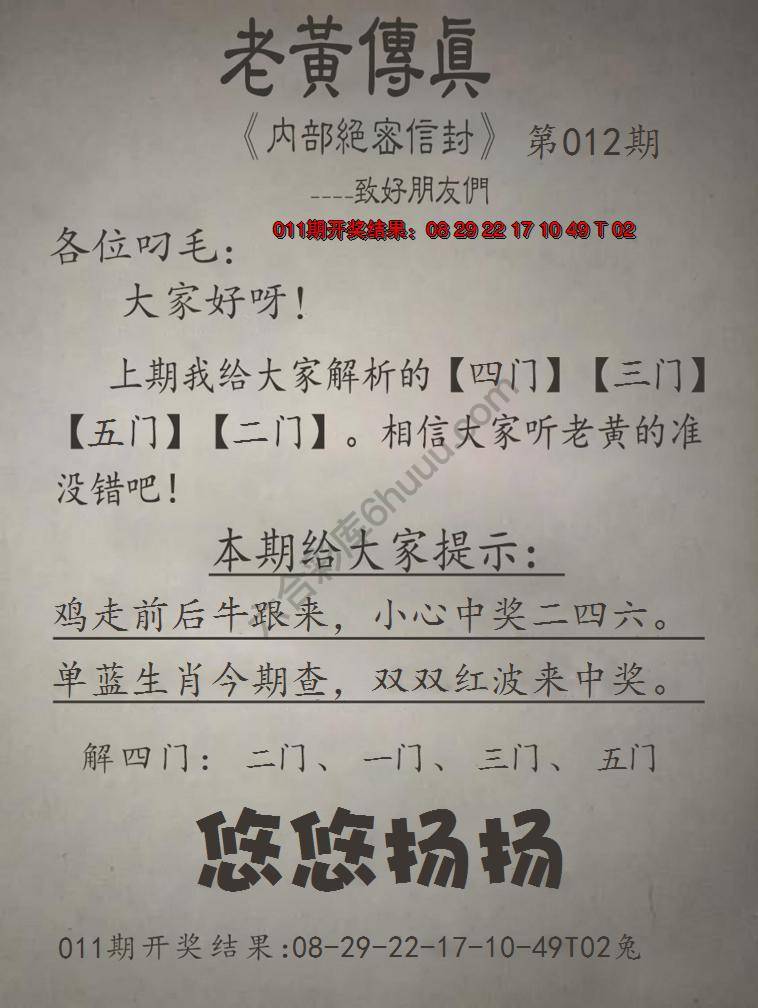 老黃傳真
《内部絕密信封》 第012期
----致好朋友們
011期开奖结果：08 29 22 17 10 49 T 02
各位叼毛：
大家好呀！
上期我给大家解析的【四门】【三门】
【五门】【二门】。相信大家听老黄的准
没错吧！
本期给大家提示：
鸡走前后牛跟来，小心中奖二四六。
单蓝生肖今期查，双双红波来中奖。
解四门： 二门、 一门、 三门、 五门
悠悠扬扬
011期开奖结果:08-29-22-17-10-49T02兔
六合彩库6huuu.com